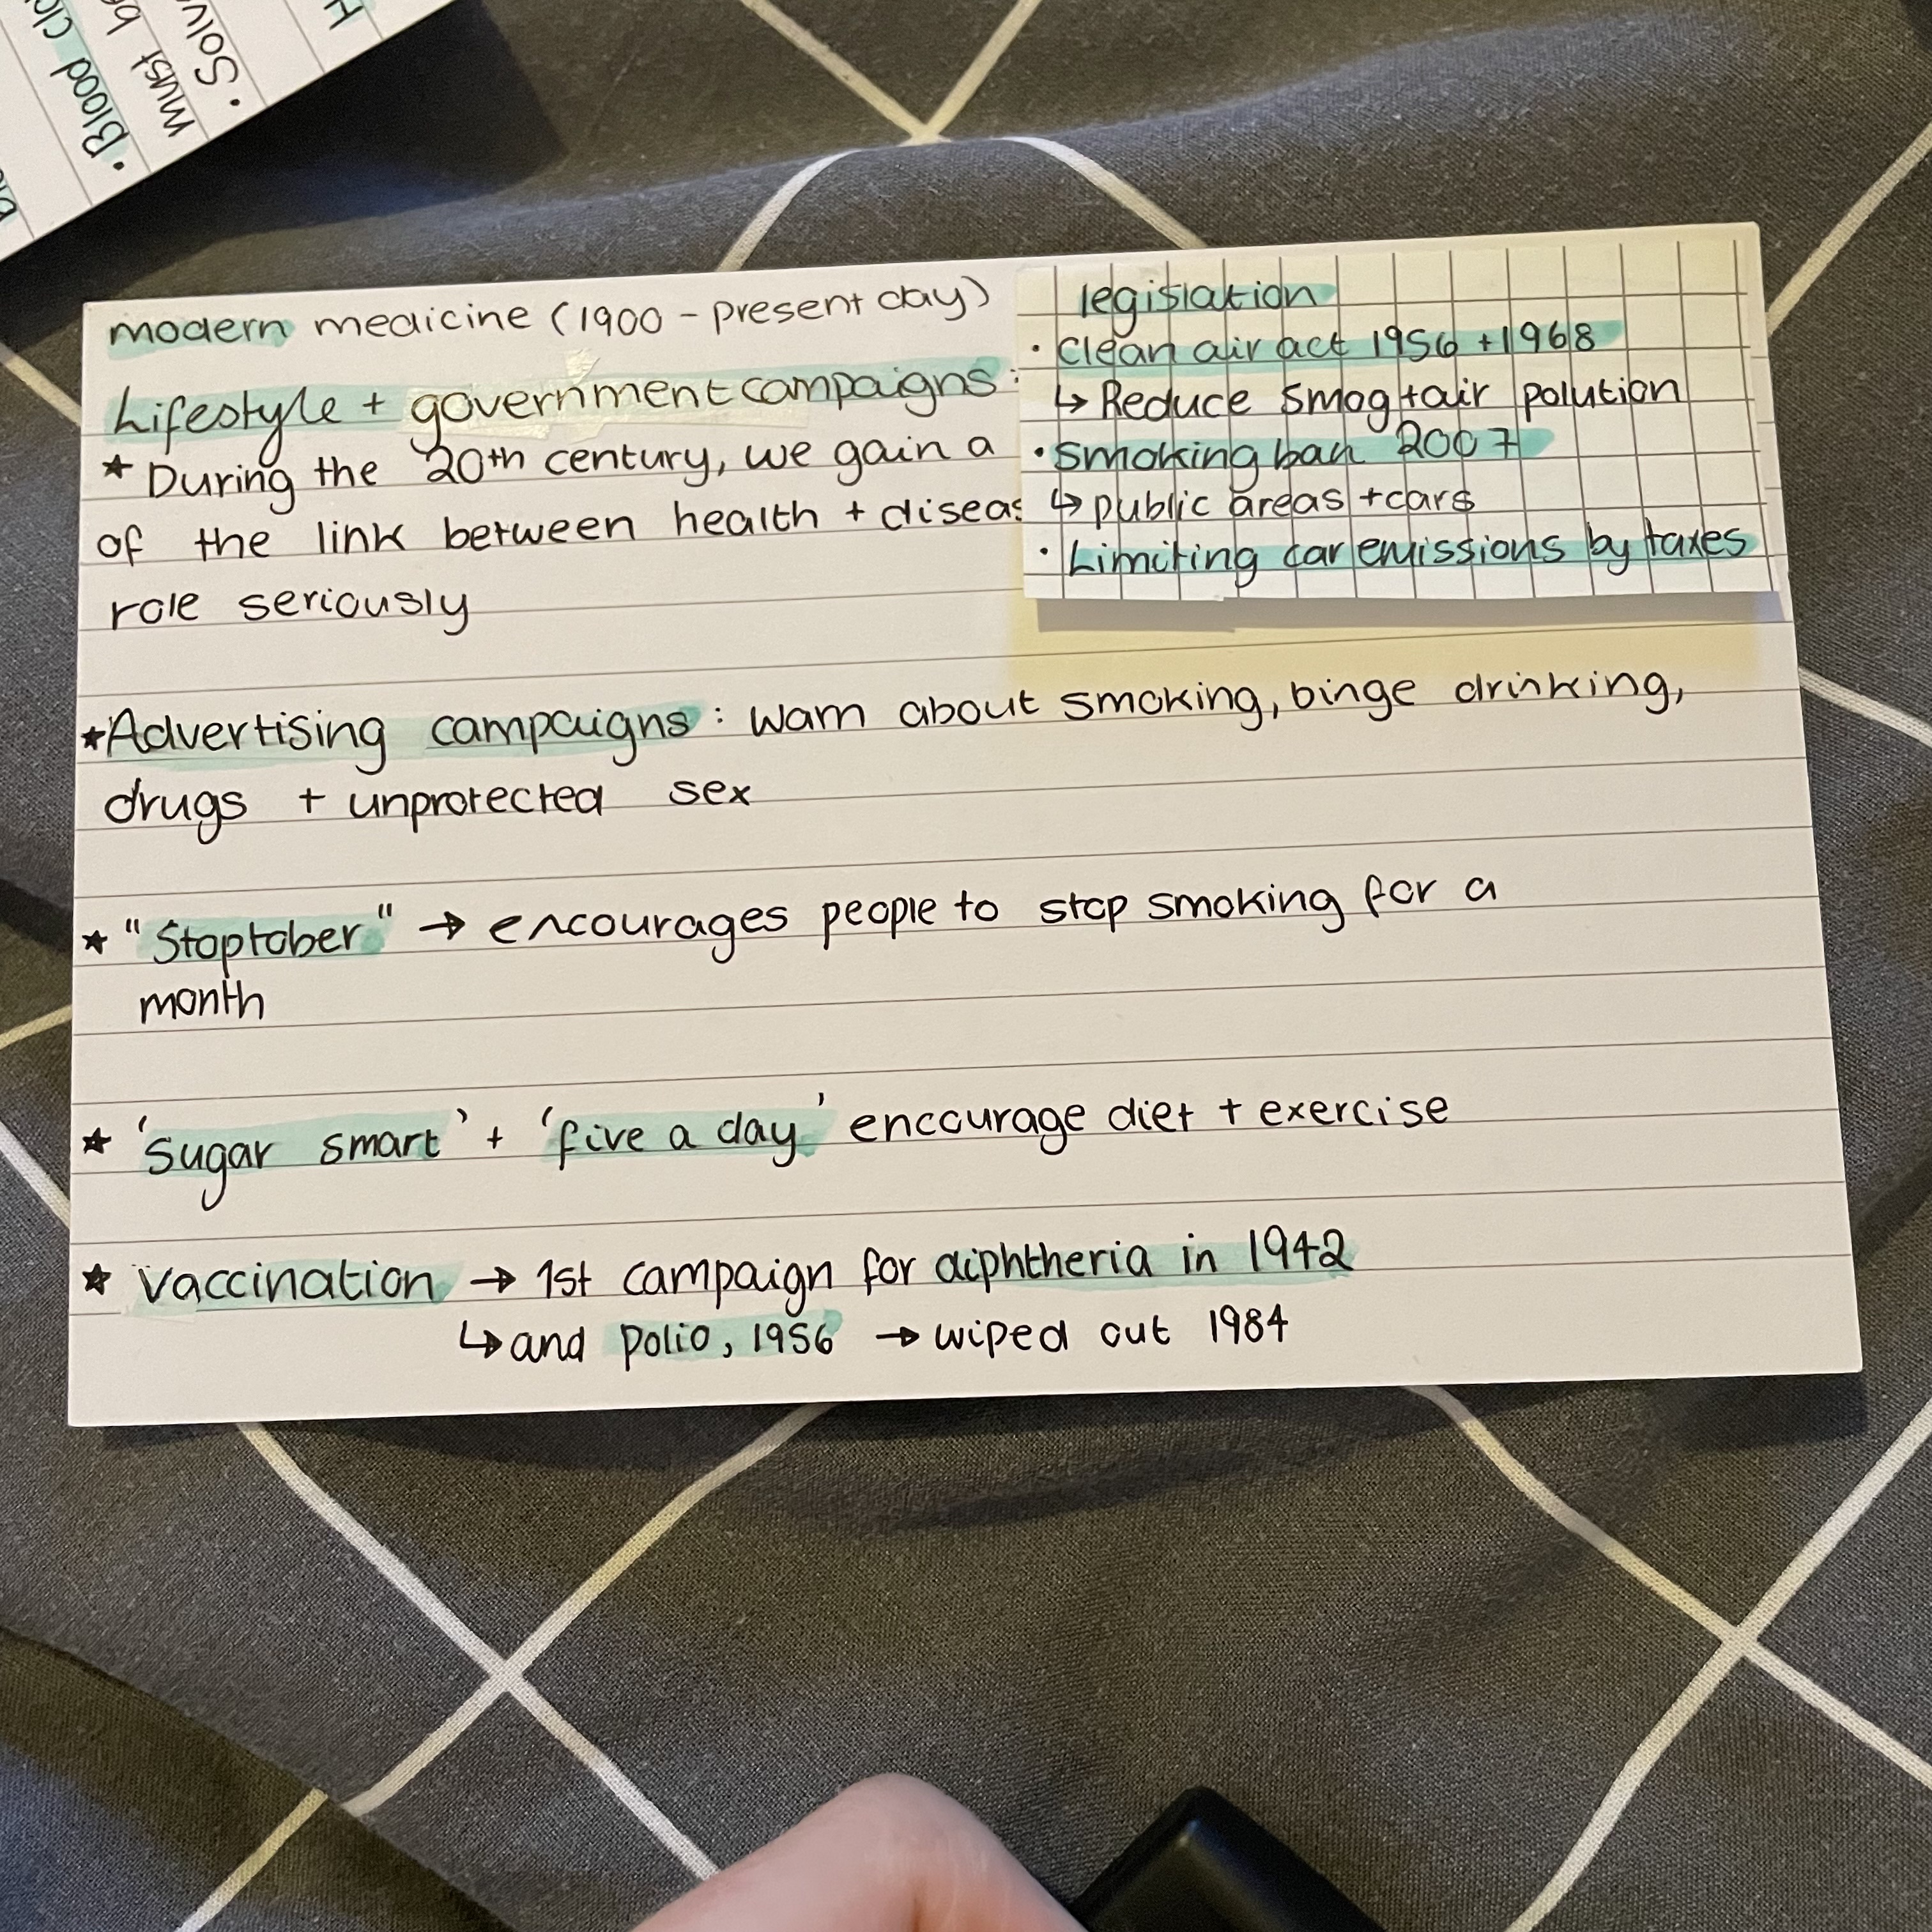 modern medicine (1900 - present day)
Lifestyle + government campaigns:
★ During the 20th century, we gain a
of the link between health + diseas
role seriously
legislation
• Clean air act 1956 + 1968
↳ Reduce smog + air polution
• Smoking ban 2007
↳ public areas + cars
• Limiting car emissions by taxes
★ Advertising campaigns : warn about smoking, binge drinking,
drugs + unprotected sex
★ "Stoptober" → encourages people to stop smoking for a
month
★ 'sugar smart' + 'five a day' encourage diet + exercise
★ vaccination → 1st campaign for diphtheria in 1942
↳ and polio, 1956 → wiped out 1984
• Blood clo
must be
• Solv
H